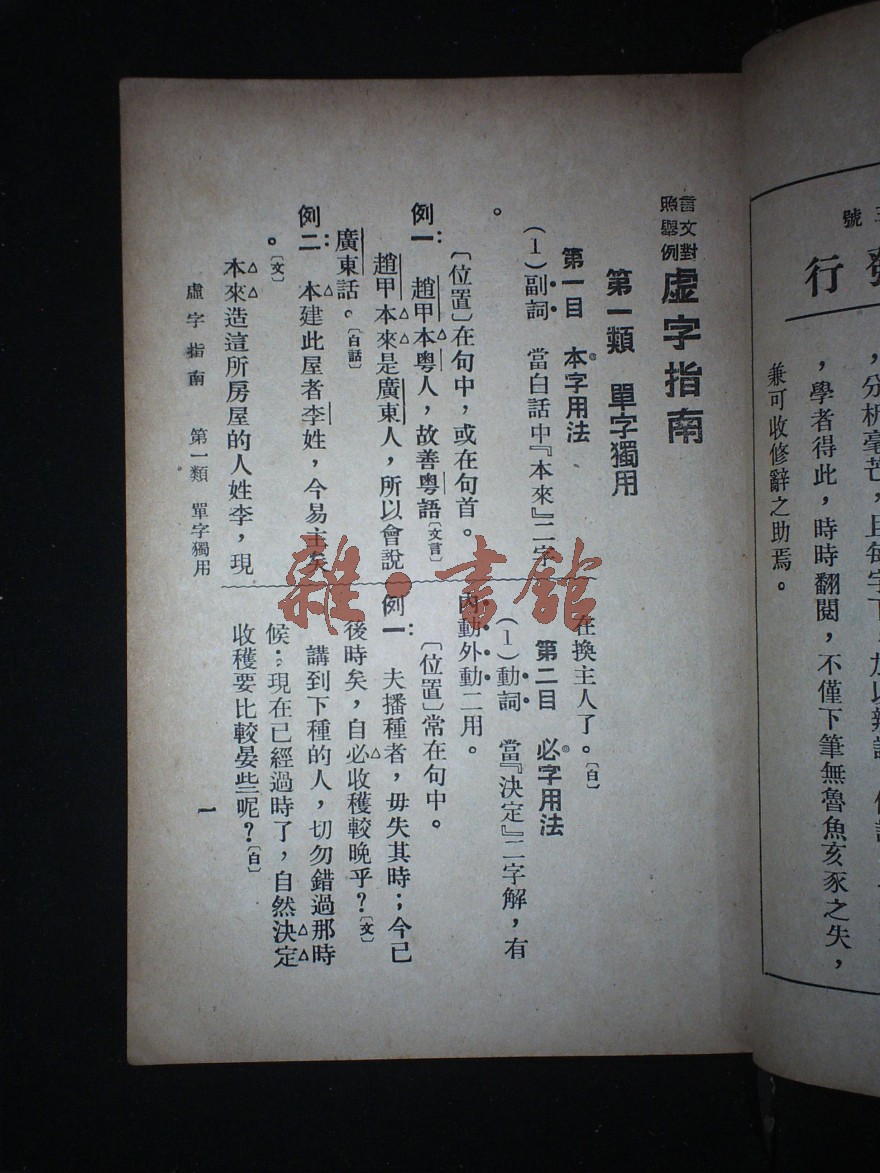 號
發
行
，分析毫芒，且每字下，加以辨
，學者得此，時時翻閱，不僅下筆無魯魚亥豕之失，
兼可收修辭之助焉。
言文對照舉例 虛字指南
第一類　單字獨用
第一目　本字用法
(1)副詞　當白話中『本來』二字
。
〔位置〕在句中，或在句首。
例一：　趙甲本粵人，故善粵語〔文言〕
趙甲本來是廣東人，所以會說
廣東話。〔白話〕
例二：　本建此屋者李姓，今易主矣
。〔文〕
本來造這所房屋的人姓李，現
在換主人了。〔白〕
第二目　必字用法
(1)動詞　當『決定』二字解，有
內動外動二用。
〔位置〕常在句中。
例一：　夫播種者，毋失其時；今已
後時矣，自必收穫較晚乎？〔文〕
講到下種的人，切勿錯過那時
候；現在已經過時了，自然決定
收穫要比較晏些呢？〔白〕
虛字指南　第一類　單字獨用
一
雜·書館